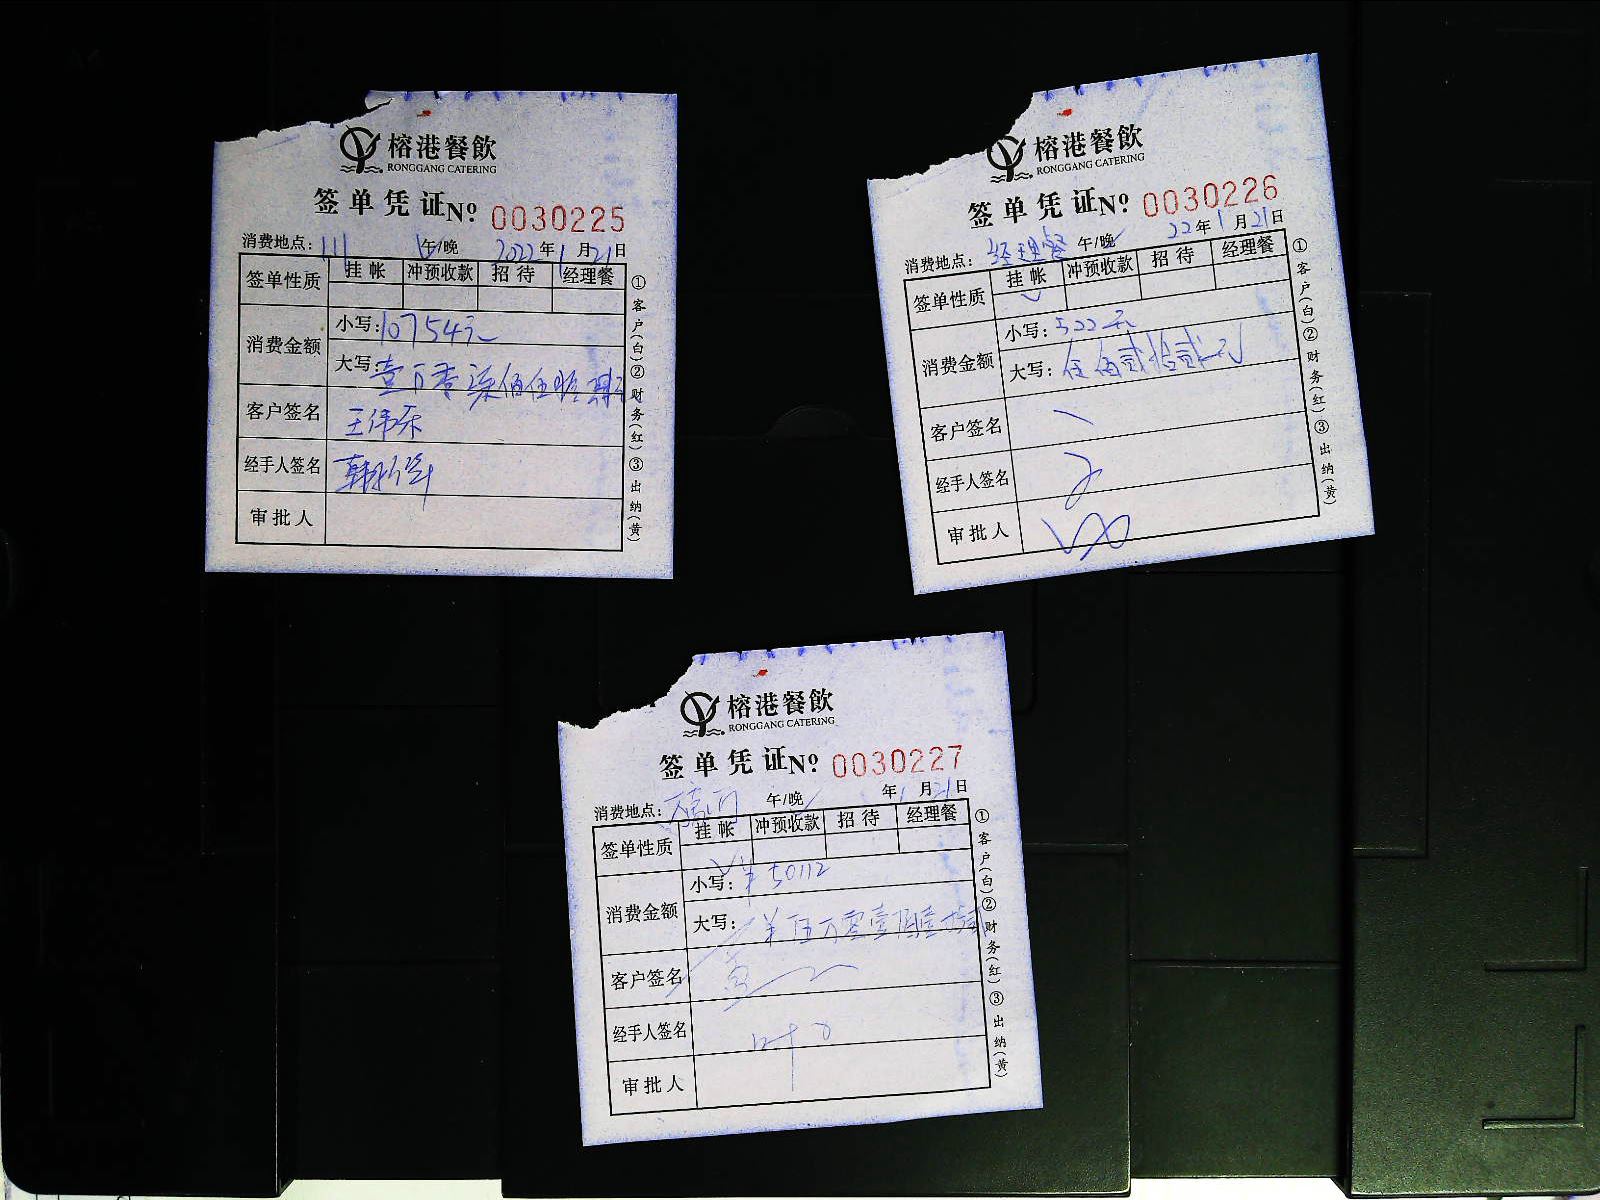 榕港餐飲
RONGGANG CATERING
签单凭证No 0030225
消费地点: 111 午/晚 2022年1月21日
签单性质 挂帐 冲预收款 招待 经理餐
消费金额 小写: 10754元
大写: 壹万零柒佰伍拾肆元
客户签名
经手人签名
审批人
①客户(白)②财务(红)③出纳(黄)
榕港餐飲
RONGGANG CATERING
签单凭证No 0030226
消费地点: 经理餐 午/晚 22年1月21日
签单性质 挂帐 冲预收款 招待 经理餐
消费金额 小写: 522元
大写: 伍佰贰拾贰元
客户签名
经手人签名
审批人
①客户(白)②财务(红)③出纳(黄)
榕港餐飲
RONGGANG CATERING
签单凭证No 0030227
消费地点: 午/晚 年1月21日
签单性质 挂帐 冲预收款 招待 经理餐
消费金额 小写: 50112
大写: 伍万零壹佰壹拾贰
客户签名
经手人签名
审批人
①客户(白)②财务(红)③出纳(黄)